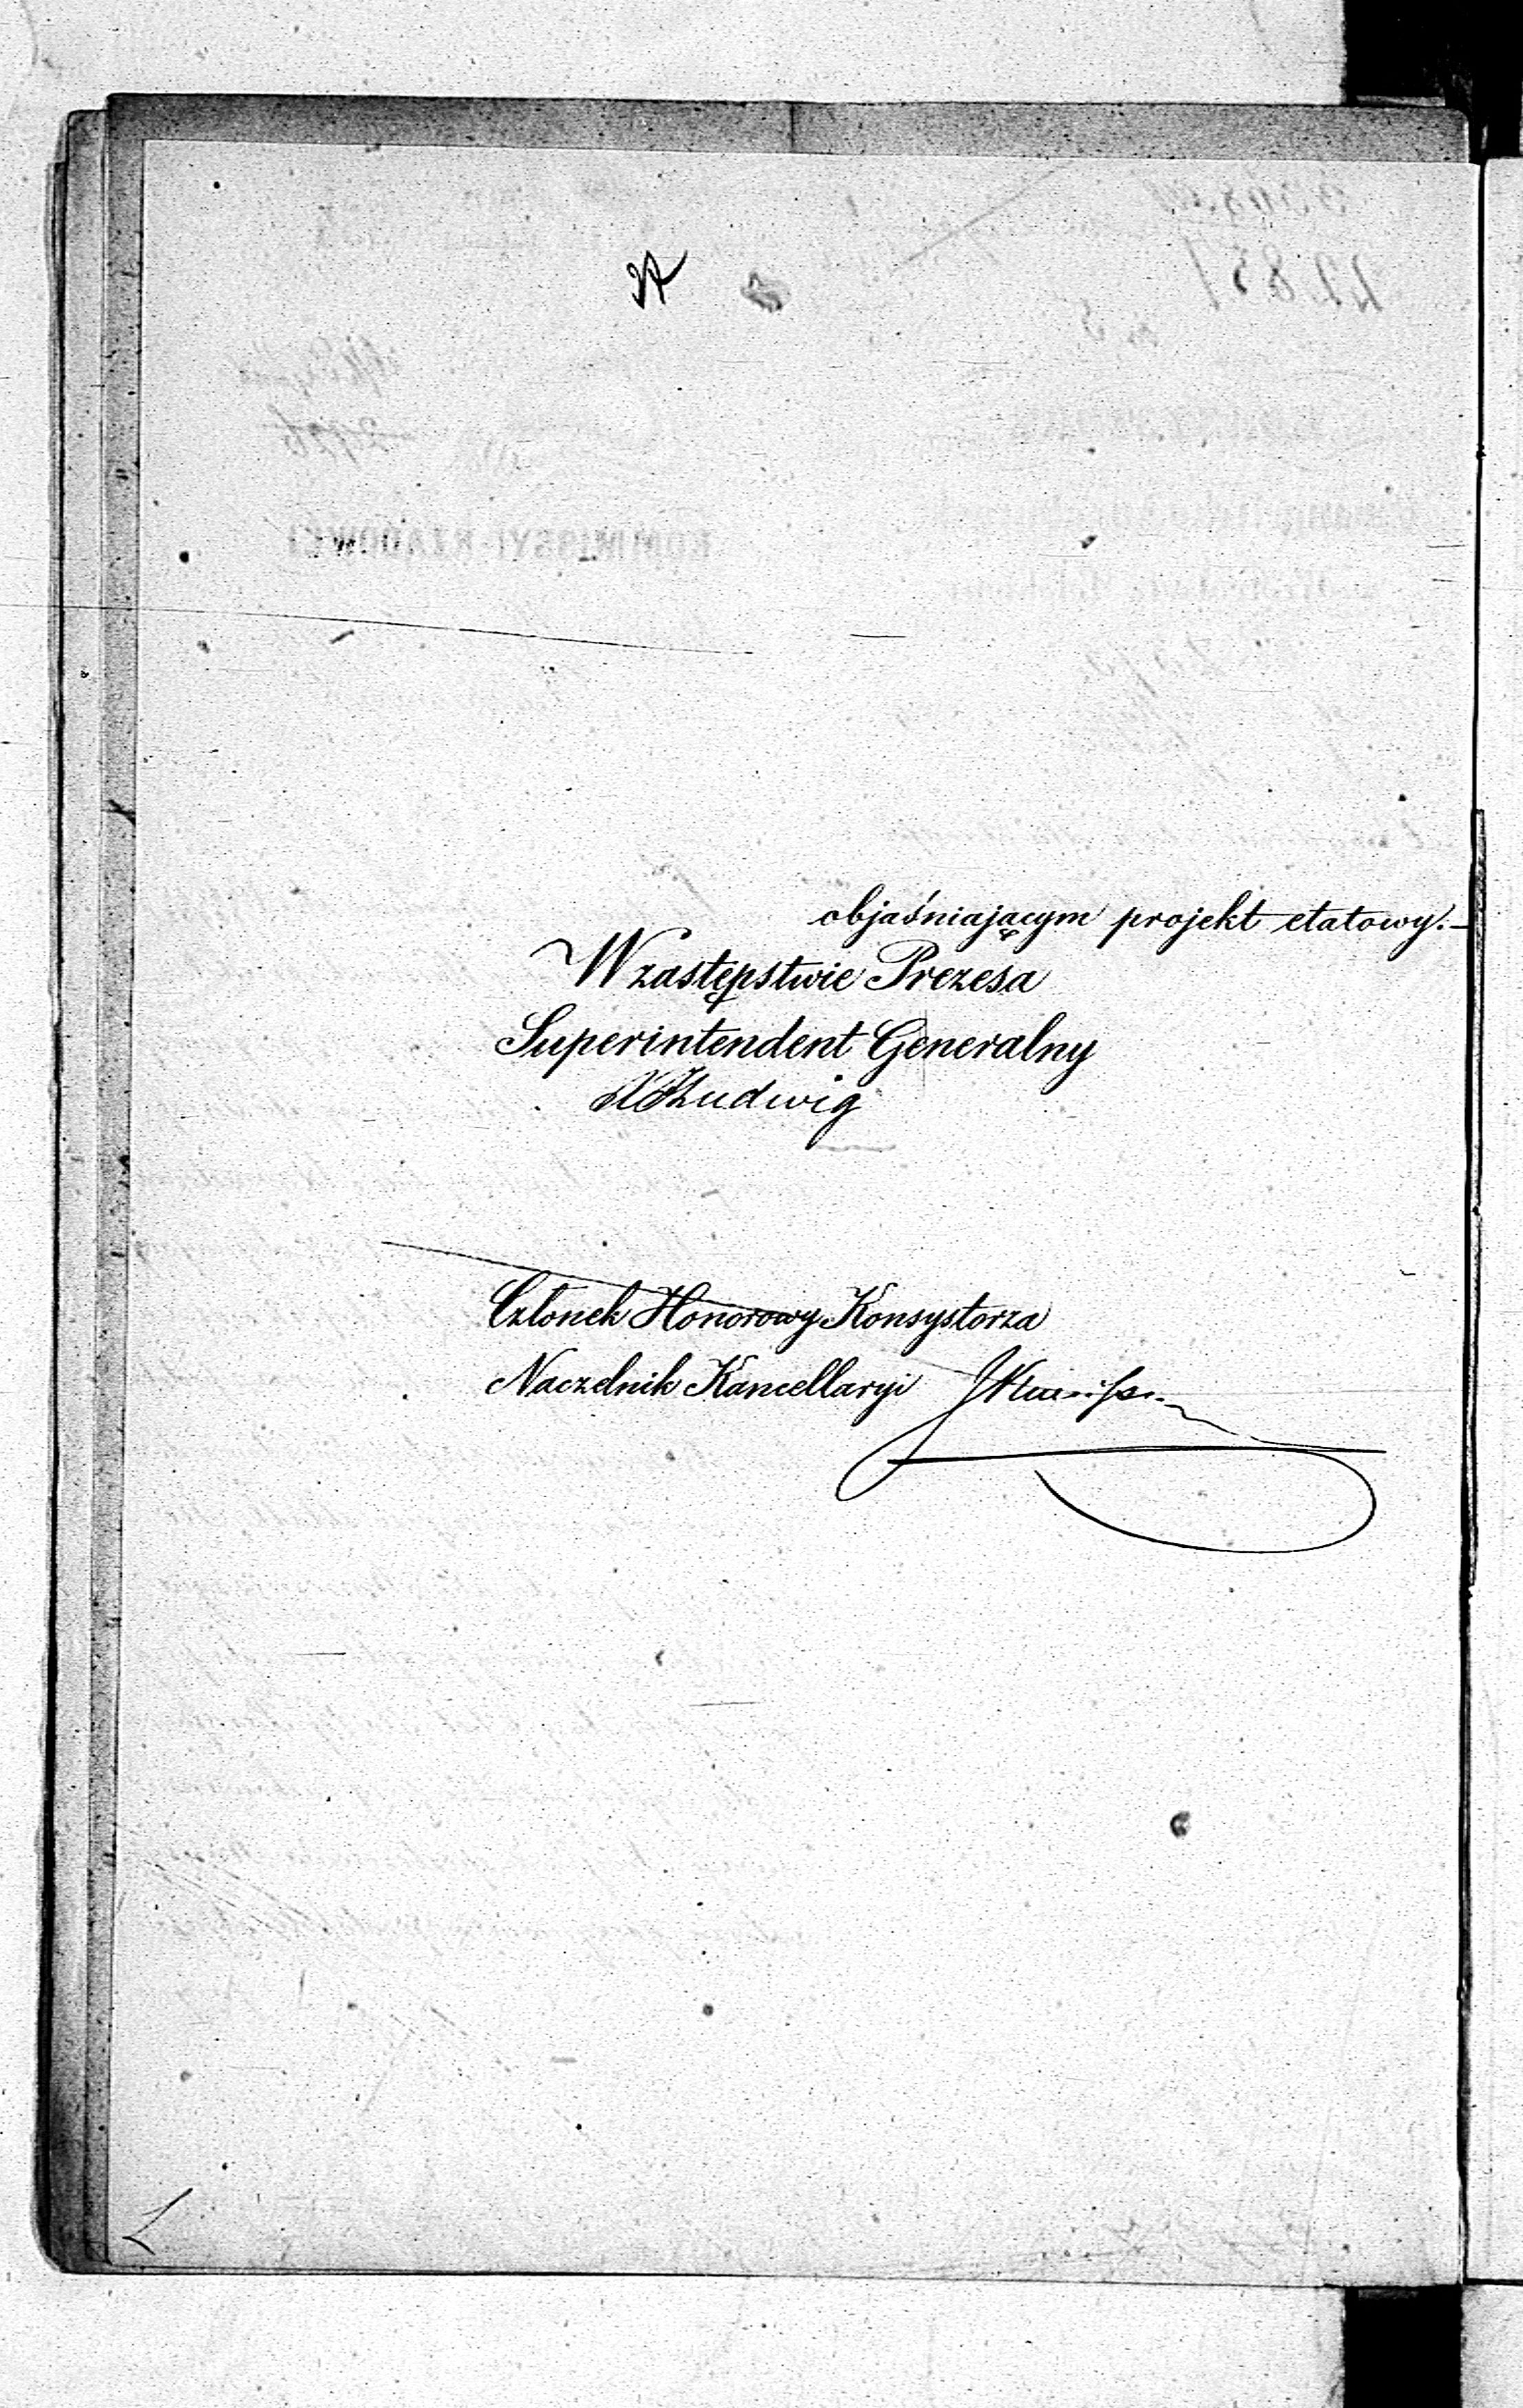 objaśniającym projekt etatowy.—
W zastępstwie Prezesa
Superintendent Generalny
Ludwig
Członek Honorowy Konsystorza
Naczelnik Kancellaryi